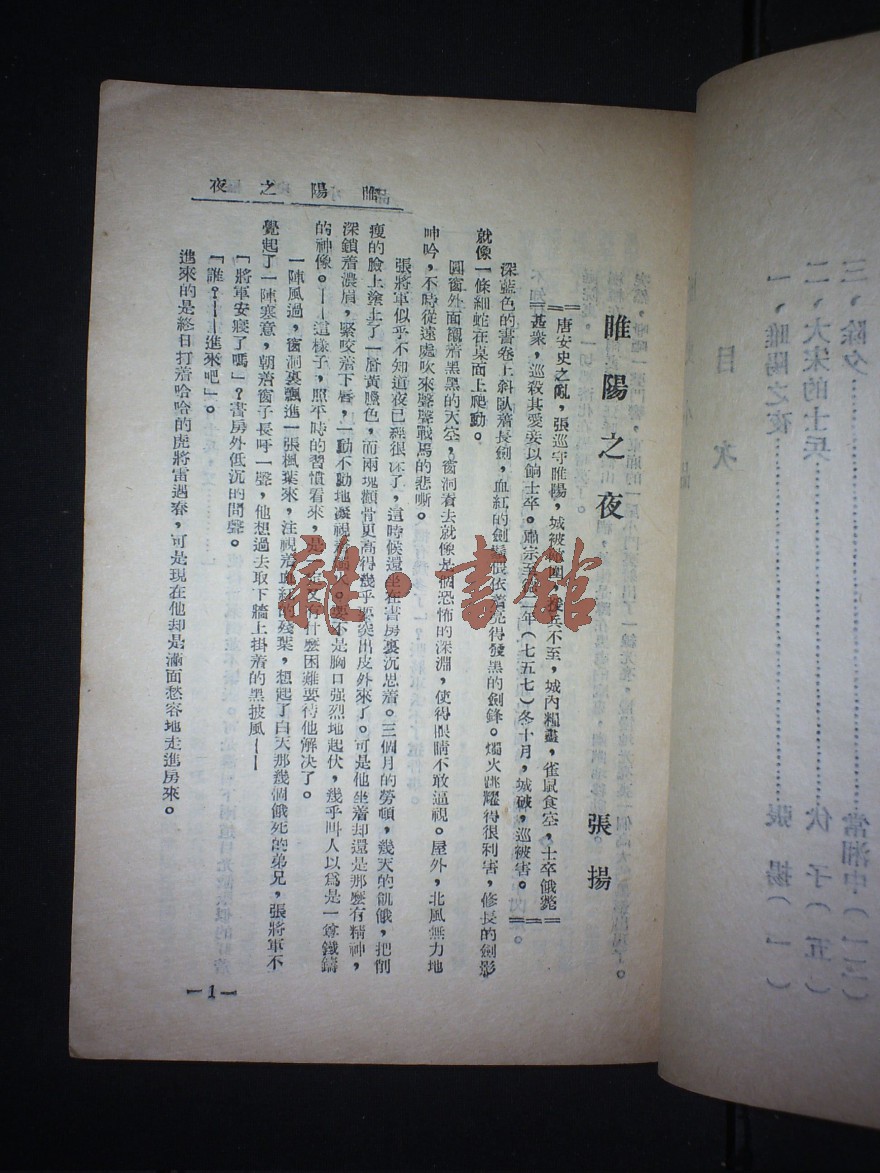 目次
一、睢陽之夜……張揚(一)
二、大宋的士兵……伏子(五)
三、除夕……常湘中(一三)
睢陽之夜
睢陽之夜
張揚
唐安史之亂,張巡守睢陽,城被 兵不至,城內糧盡,雀鼠食空,士卒餓斃
甚衆,巡殺其愛妾以餉士卒。肅宗至 二年(七五七)冬十月,城破,巡被害。
深藍色的書卷上斜臥着長劍,血紅的劍 偎依着 亮得發黑的劍鋒。燭火跳躍得很利害,修長的劍影
就像一條細蛇在桌面上爬動。
圓窗外面襯着黑黑的天空,窗洞看去就像是個恐怖的深淵,使得眼睛不敢逼視。屋外,北風無力地
呻吟,不時從遠處吹來聲聲戰馬的悲嘶。
張將軍似乎不知道夜已經很深了,這時候還坐在書房裏沉思着。三個月的勞頓,幾天的飢餓,把削
瘦的臉上塗上了一層黃臘色,而兩塊顴骨更高得幾乎要突出皮外來了。可是他坐着却還是那麼有精神,
深鎖着濃眉,緊咬着下唇,一動不動地凝視着燭火。要不是胸口强烈地起伏,幾乎叫人以爲是一尊鐵鑄
的神像。——這樣子,照平時的習慣看來,是 又有什麼困難要待他解決了。
一陣風過,窗洞裏飄進一張楓葉來,注視着血紅的殘葉,想起了白天那幾個餓死的弟兄,張將軍不
覺起了一陣寒意,朝着窗子長吁一聲,他想過去取下牆上掛着的黑披風——
「將軍安寢了嗎」?書房外低沉的問聲。
「誰?——進來吧」。
進來的是終日打着哈哈的虎將雷遇春,可是現在他却是滿面愁容地走進房來。
—1—
雜·書館